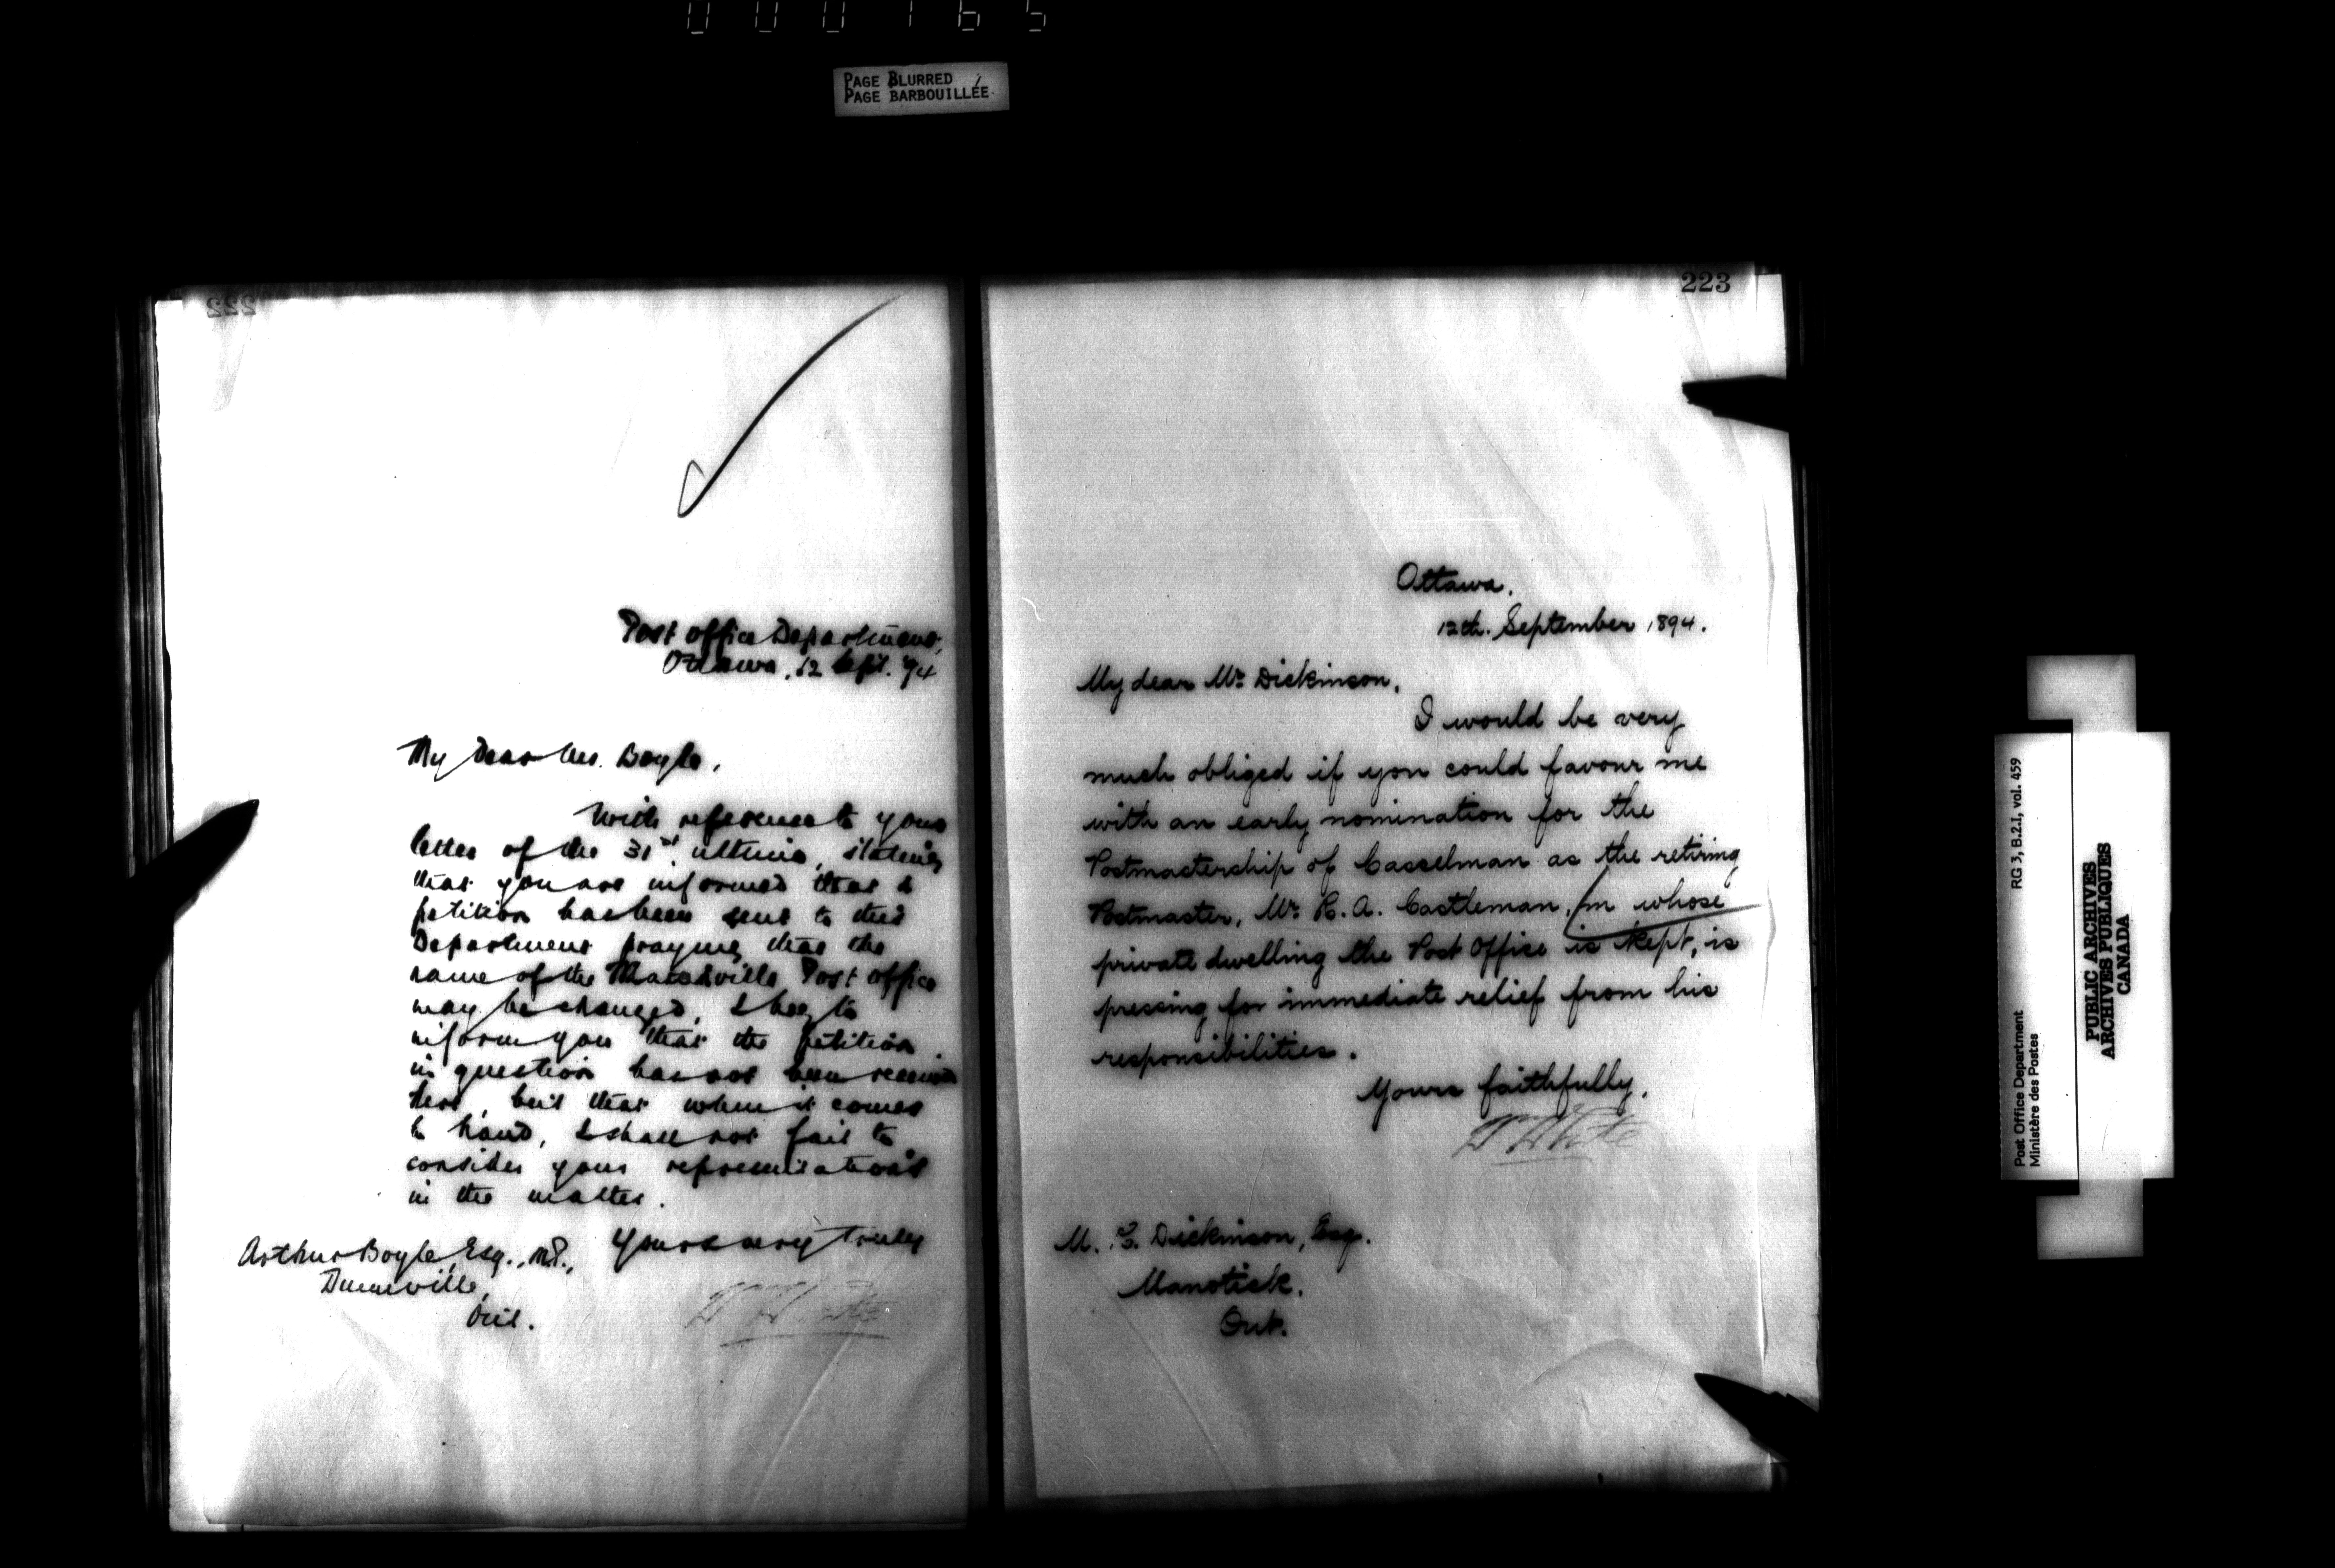 000165
PAGE BLURRED
PAGE BARBOUILLÉE
222
Post Office Department,
Ottawa, 12 Sept. 94
My Dear Mr. Boyle,
With reference to your
letter of the 31st. ultimo, stating
that you are informed that a
petition has been sent to this
Department praying that the
name of the Marshville Post office
may be changed, I beg to
inform you that the petition
in question has not been received
here, but that when it comes
to hand, I shall not fail to
consider your representations
in the matter.
Yours very truly
Arthur Boyle, Esq., M.P.,
Dunnville,
Ont.
223
Ottawa,
12th. September 1894.
My dear Mr. Dickinson,
I would be very
much obliged if you could favour me
with an early nomination for the
Postmastership of Casselman as the retiring
Postmaster, Mr. R. A. Castleman, in whose
private dwelling the Post Office is kept, is
pressing for immediate relief from his
responsibilities.
Yours faithfully,
Dickinson, Esq.
Manotick,
Ont.
RG 3, B.2.I, vol. 459
Post Office Department
Ministère des Postes
PUBLIC ARCHIVES
ARCHIVES PUBLIQUES
CANADA